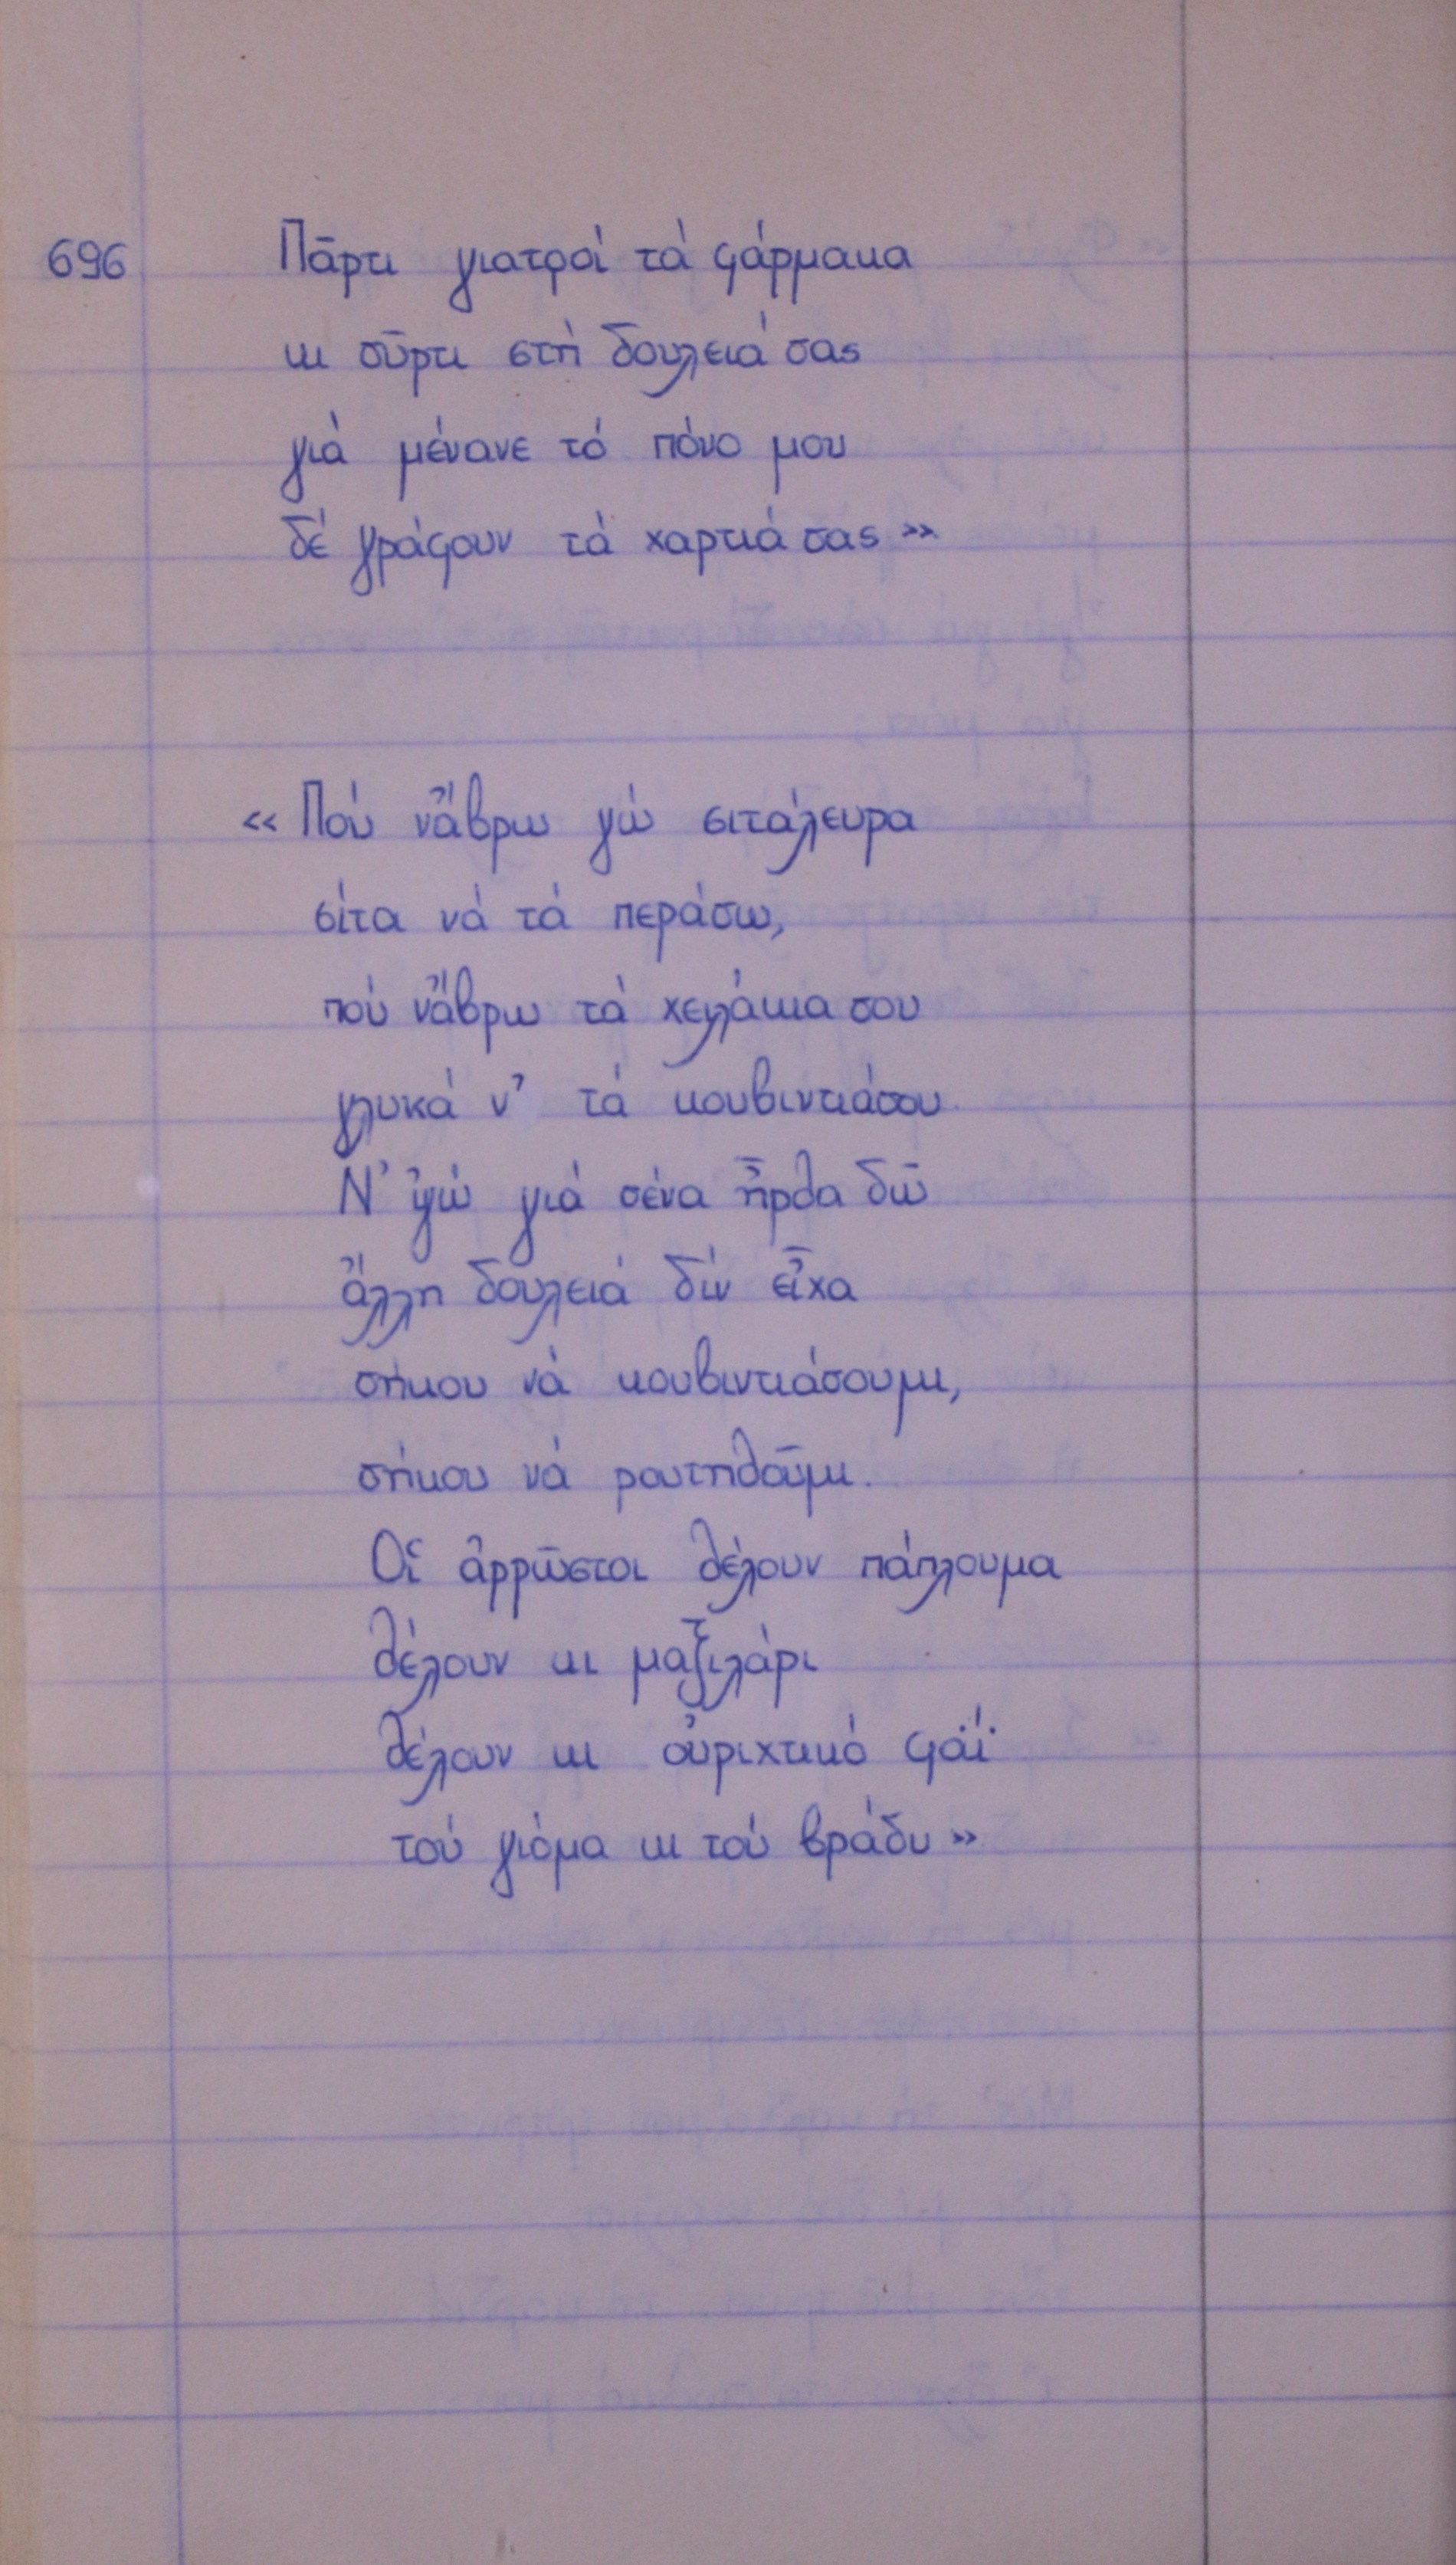 696 Πᾶρτι γιατροί τά φάρμακα
κι σῦρτι στή δουλειά σας
γιά μένανε τό πόνο μου
δέ γράφουν τά χαρτιά σας»
«Πού νἄβρω γώ σιτάλευρα
σίτα νά τά περάσω,
πού νἄβρω τά χειλάκια σου
γλυκά ν' τά κουβιντιάσου.
Ν' ἰγώ γιά σένα ἦρθα δῶ
ἄλλη δουλειά δίν εἶχα
σήκου νά κουβιντιάσουμι,
σήκου νά ρουτηθοῦμι.
Οἵ ἀρρῶστοι θέλουν πάπλουμα
θέλουν κι μαξιλάρι
θέλουν κι οὐριχτικό φάϊ
τού γιόμα κι τού βράδυ»